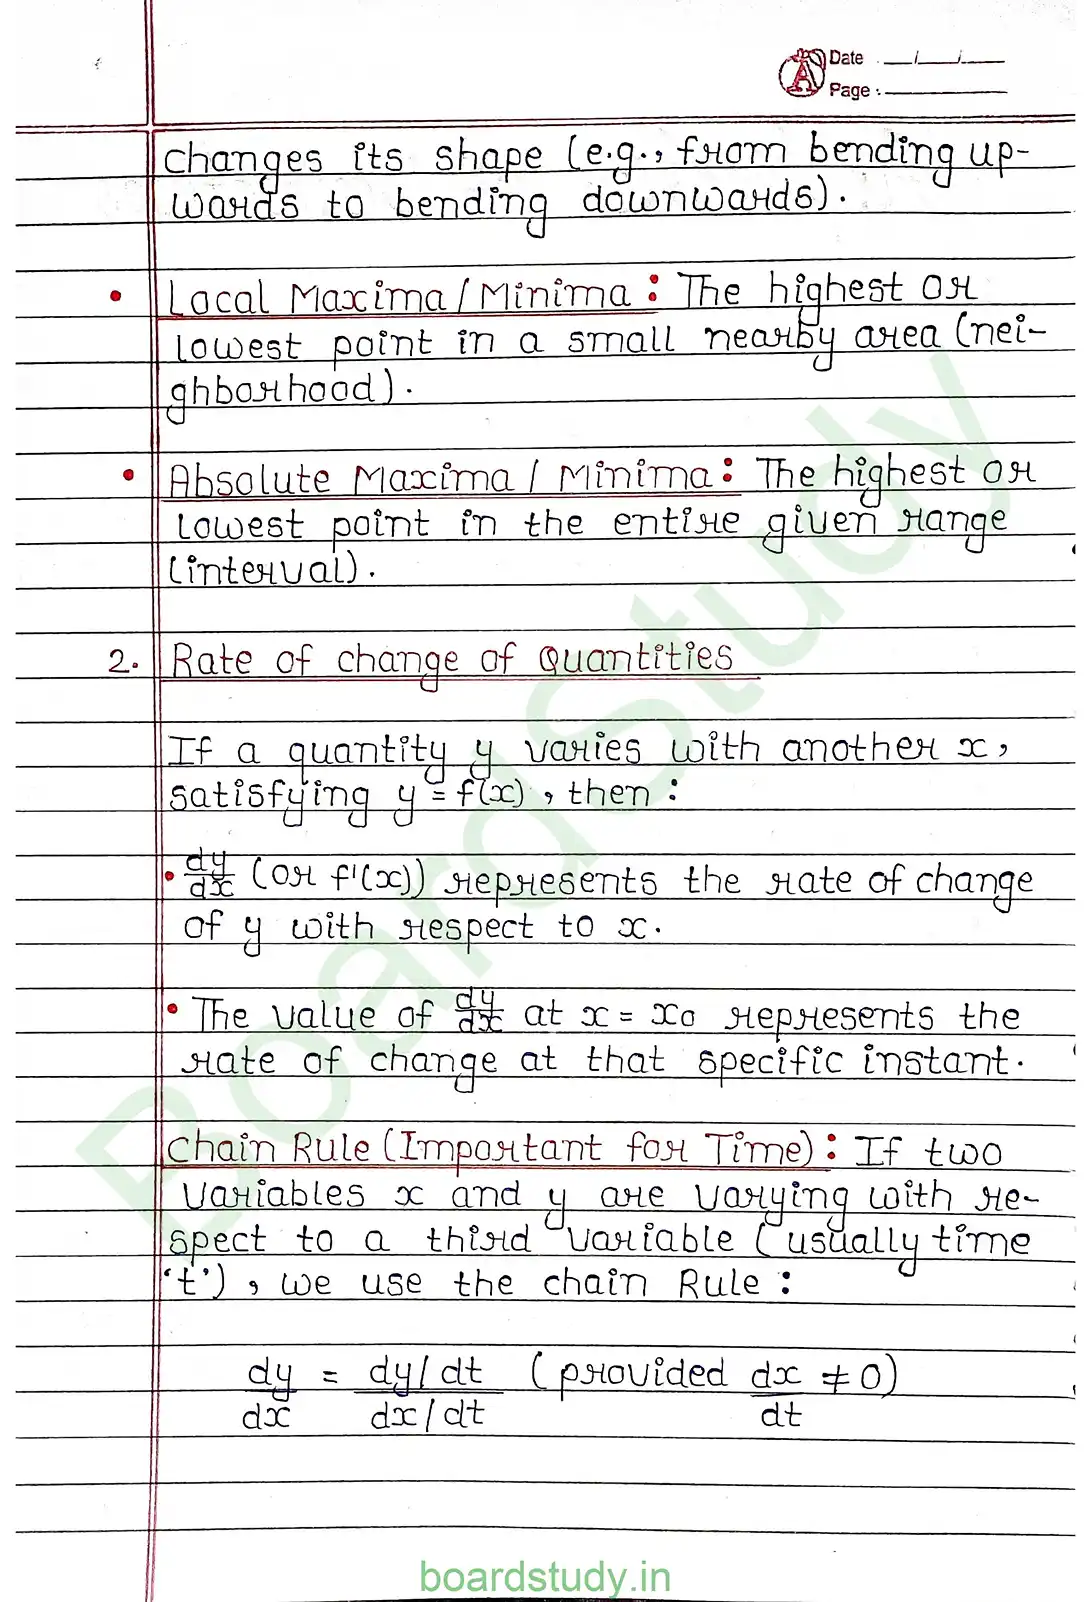 Date : __/__/__
Page : 
changes its shape (e.g., from bending up-
wards to bending downwards).
• Local Maxima / Minima : The highest or
lowest point in a small nearby area (nei-
ghborhood).
• Absolute Maxima / Minima : The highest or
lowest point in the entire given range
(interval).
2. Rate of change of Quantities
If a quantity y varies with another x,
satisfying y = f(x), then :
• dy/dx (or f'(x)) represents the rate of change
of y with respect to x.
• The value of dy/dx at x = x₀ represents the
rate of change at that specific instant.
Chain Rule (Important for Time) : If two
variables x and y are varying with re-
spect to a third variable (usually time
't'), we use the chain Rule :
dy/dx = (dy/dt)/(dx/dt) (provided dx/dt ≠ 0)
BoardStudy
boardstudy.in